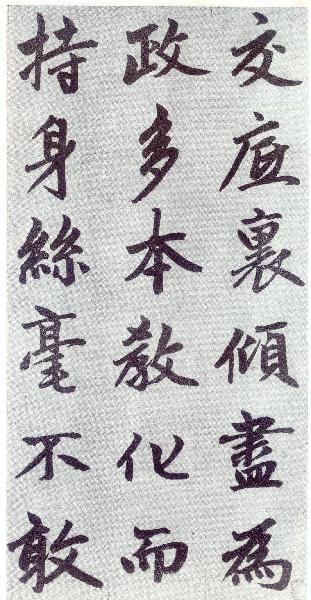 交底裏傾盡為
政多本教化而
持身絲毫不敢